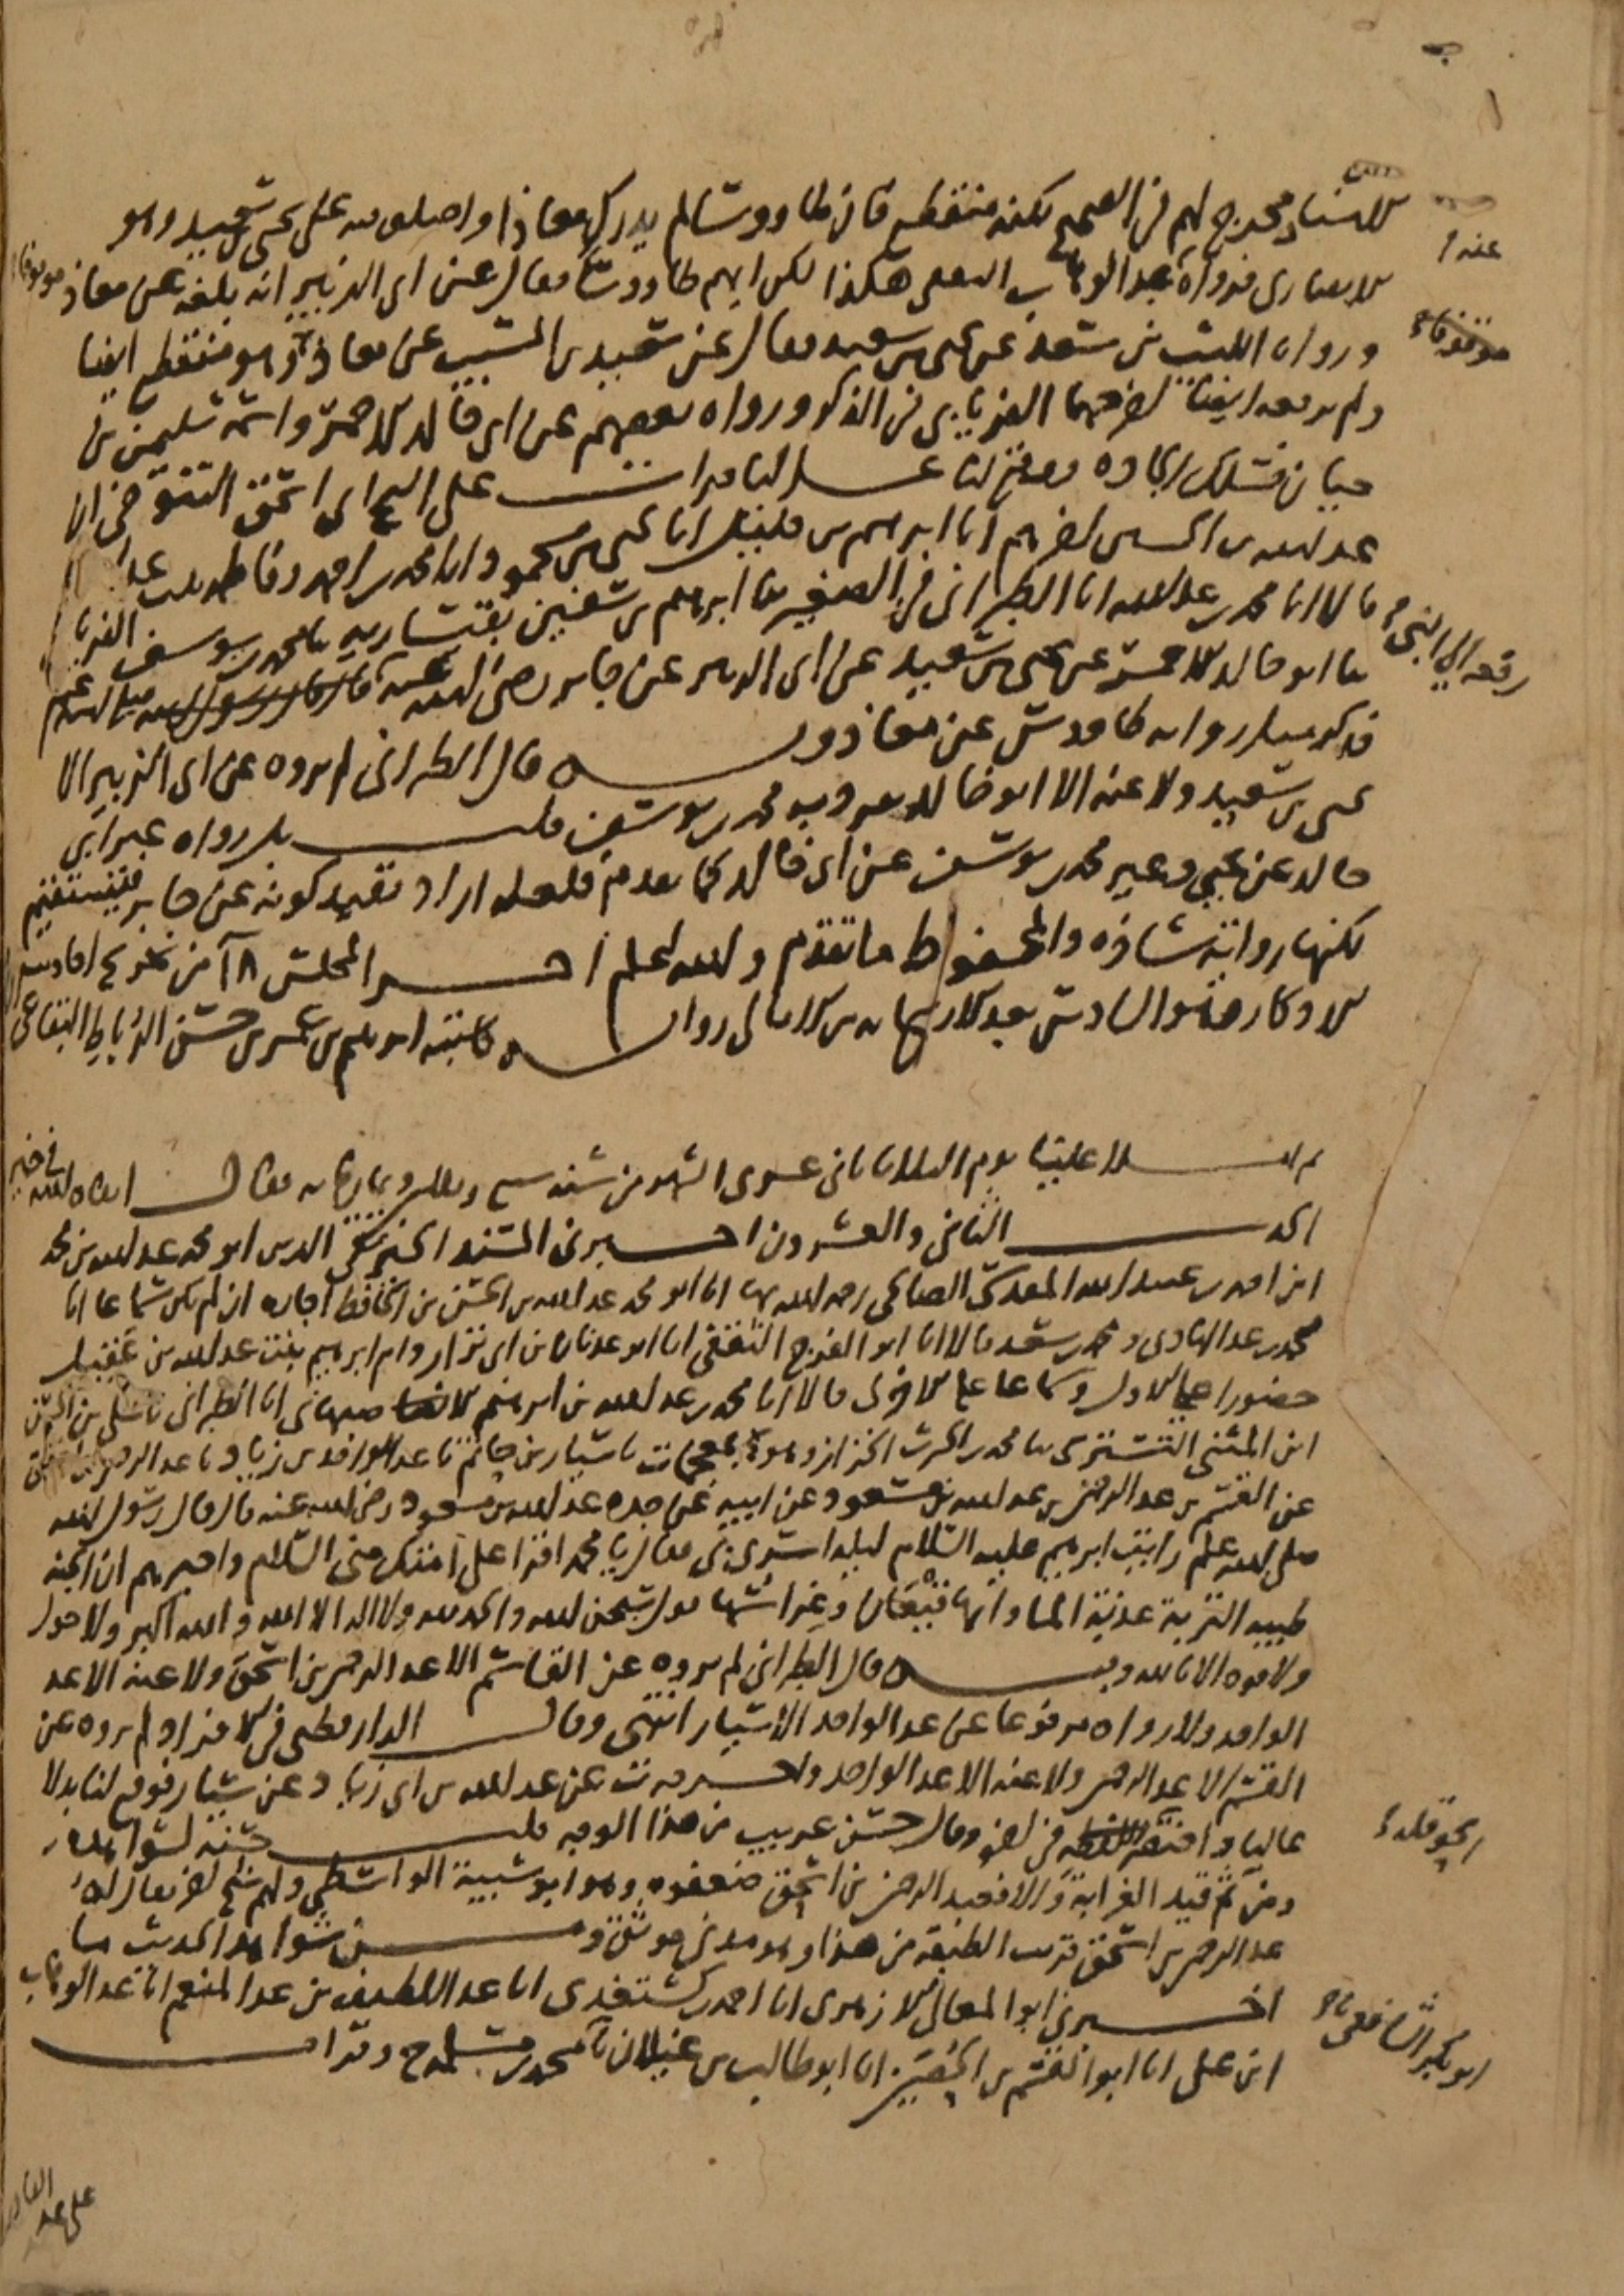 الاسناد مخرج لهم في الصحيح لكنه منقطع فان طاووسا لم يدرك معاذا واختلف فيه على يحيى بن سعيد وهو
عنه
الانصاري فرواه عبد الوهاب الثقفي هكذا لكن ابهم طاووسا فقال عن ابي الزبير انه بلغه عن معاذ موقوفا
ورواه الليث بن سعد عن يحيى بن سعيد فقال عن سعيد بن المسيب عن معاذ وهو منقطع ايضا
ولم يرفعه ايضا اخرجهما الفريابي في الذكر ورواه بعضهم عن ابي خالد الاحمر واسمه سليمن بن
حيان فسلك الجادة ووقع لنا عاليا قرات على ابي اسحق التنوخي ان
عبد الله بن الحسين اخبرهم انا ابرهيم بن خليل انا يحيى بن محمود انا محمد بن احمد وفاطمة بنت عبد الله
قالا انا محمد بن عبد الله انا الطبراني في الصغير ثنا ابرهيم بن سفين بقيسارية ثنا محمد بن يوسف الفريابي
ثنا ابو خالد الاحمر عن يحيى بن سعيد عن ابي الزبير عن جابر رضي الله عنه
رفعه الى النبي
فذكر مثل رواية طاووس عن معاذ وبه قال الطبراني لم يروه عن ابي الزبير الا
يحيى بن سعيد ولا عنه الا ابو خالد تفرد به محمد بن يوسف قلت بل رواه غير ابي
خالد عن يحيى وغير محمد بن يوسف عن ابي خالد كما تقدم فلعله اراد تقييد كونه عن جابر فيستقيم
لكنها رواية شاذة والمحفوظ ما تقدم والله اعلم اخر المجلس ١٨ من تخريج احاديث
الاذكار وهو السادس بعد الاربعماية من الامالي رواية كاتبه ابرهيم بن عمر بن حسن الرباط البقاعي
ثم املا علينا يوم الثلاثا ثاني عشري الشهر من سنة سبع وثلثين وثمانماية فقال ابقاه الله في خير
الحديث الثاني والعشرون اخبرني المسند الخير تقي الدين ابو محمد عبد الله بن محمد
ابن احمد بن عبيد الله المقدسي الصالحي رحمه الله بها انا ابو محمد عبد الله بن الحسن بن الحافظ اجازة ان لم يكن سماعا انا
محمد بن عبد الهادي ومحمد بن سعد قالا انا ابو الفرج الثقفي انا ابو عدنان بن ابي نزار وام ابرهيم بنت عبد الله بن عقيل
حضورا على الاول وسماعا على الاخرى قالا انا محمد بن عبد الله بن ابرهيم الاصبهاني انا الطبراني ثنا علي بن الحسين
ابن المثنى التستري ثنا محمد بن الحرث الخزاز وهو بمعجمات ثنا سيار بن حاتم ثنا عبد الواحد بن زياد ثنا عبد الرحمن بن اسحق
عن القسم بن عبد الرحمن بن عبد الله بن مسعود عن ابيه عن جده عبد الله بن مسعود رضي الله عنه قال قال رسول الله
صلى الله عليه وسلم رايت ابرهيم عليه السلام ليلة اسري بي فقال يا محمد اقرا على امتك مني السلام واخبرهم ان الجنة
طيبة التربة عذبة الماء وانها قيعان وغراسها قول سبحن الله والحمد لله ولا اله الا الله والله اكبر ولا حول
ولا قوة الا بالله وبه قال الطبراني لم يروه عن القاسم الا عبد الرحمن بن اسحق ولا عنه الا عبد
الواحد ولا رواه مرفوعا عن عبد الواحد الا سيار انتهى وقال الدارقطني في الافراد لم يروه عن
القسم الا عبد الرحمن ولا عنه الا عبد الواحد واخرجه ت عن عبد الله بن ابي زياد عن سيار فوقع لنا بدلا
عاليا وقال حسن غريب من هذا الوجه قلت حسنه لشواهده
الحوقلة
ومن ثم قيد الغرابة والا فعبد الرحمن بن اسحق ضعفوه وهو ابو شيبة الواسطي ولهم شيخ اخر يقال له
عبد الرحمن بن اسحق قريب الطبقة من هذا وهو مدني موثق ومن شواهد الحديث ما
اخبرني ابو المعالي الازهري انا احمد بن كشتغدي انا عبد اللطيف بن عبد المنعم انا عبد الوهاب
ابن علي انا ابو القسم بن الحصين انا ابو طالب بن غيلان ثنا محمد بن مسلمة وقرات
ابو بكر الشافعي ثنا
على عبد القادر